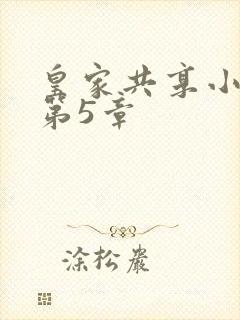 皇家共享小
第5章
涂松岩